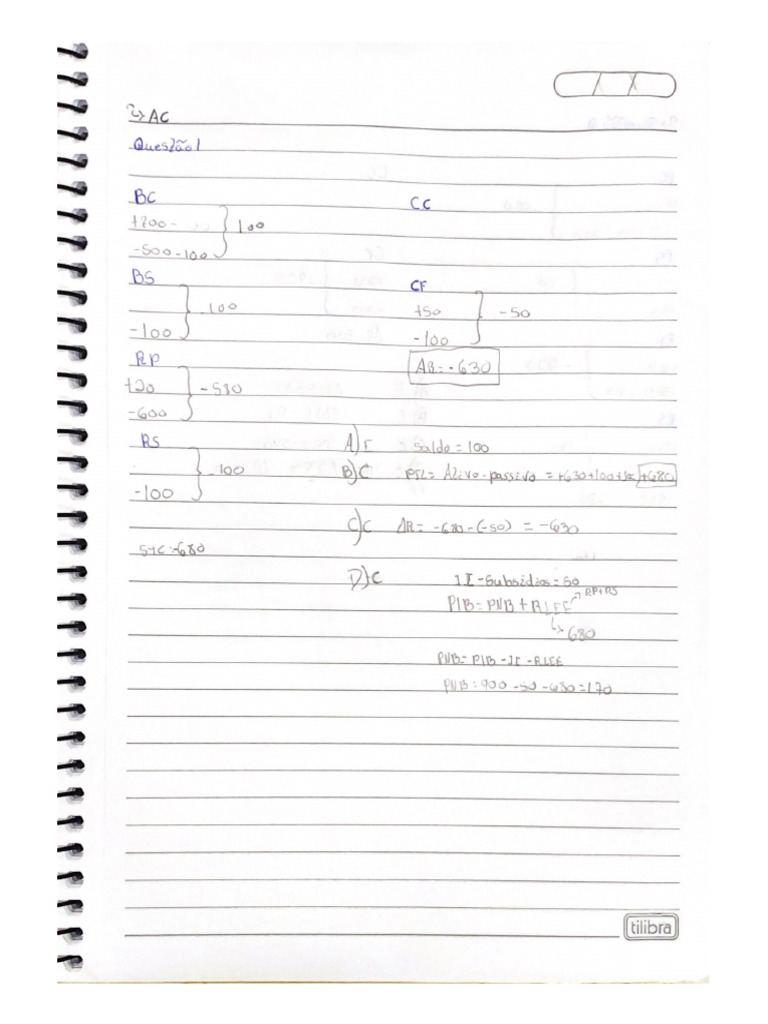 ↳ AC
Questão 1
BC
CC
+700
-500-100 } 100
BS
CF
-100 } -100
+50
-100 } -50
RP
ΔR = -630
+20
-600 } -580
RS
A) F saldo = 100
-100 } -100
B) C PEL = Ativo - passivo = +630+100+50 +680
C) C ΔR = -680 - (-50) = -630
STC = -680
D) C II - Subsídios = 50
PIB = PNB + RLEE → RP+RS
↳ 680
PNB = PIB - II - RLEE
PNB = 900 - 50 - 680 = 170
tilibra